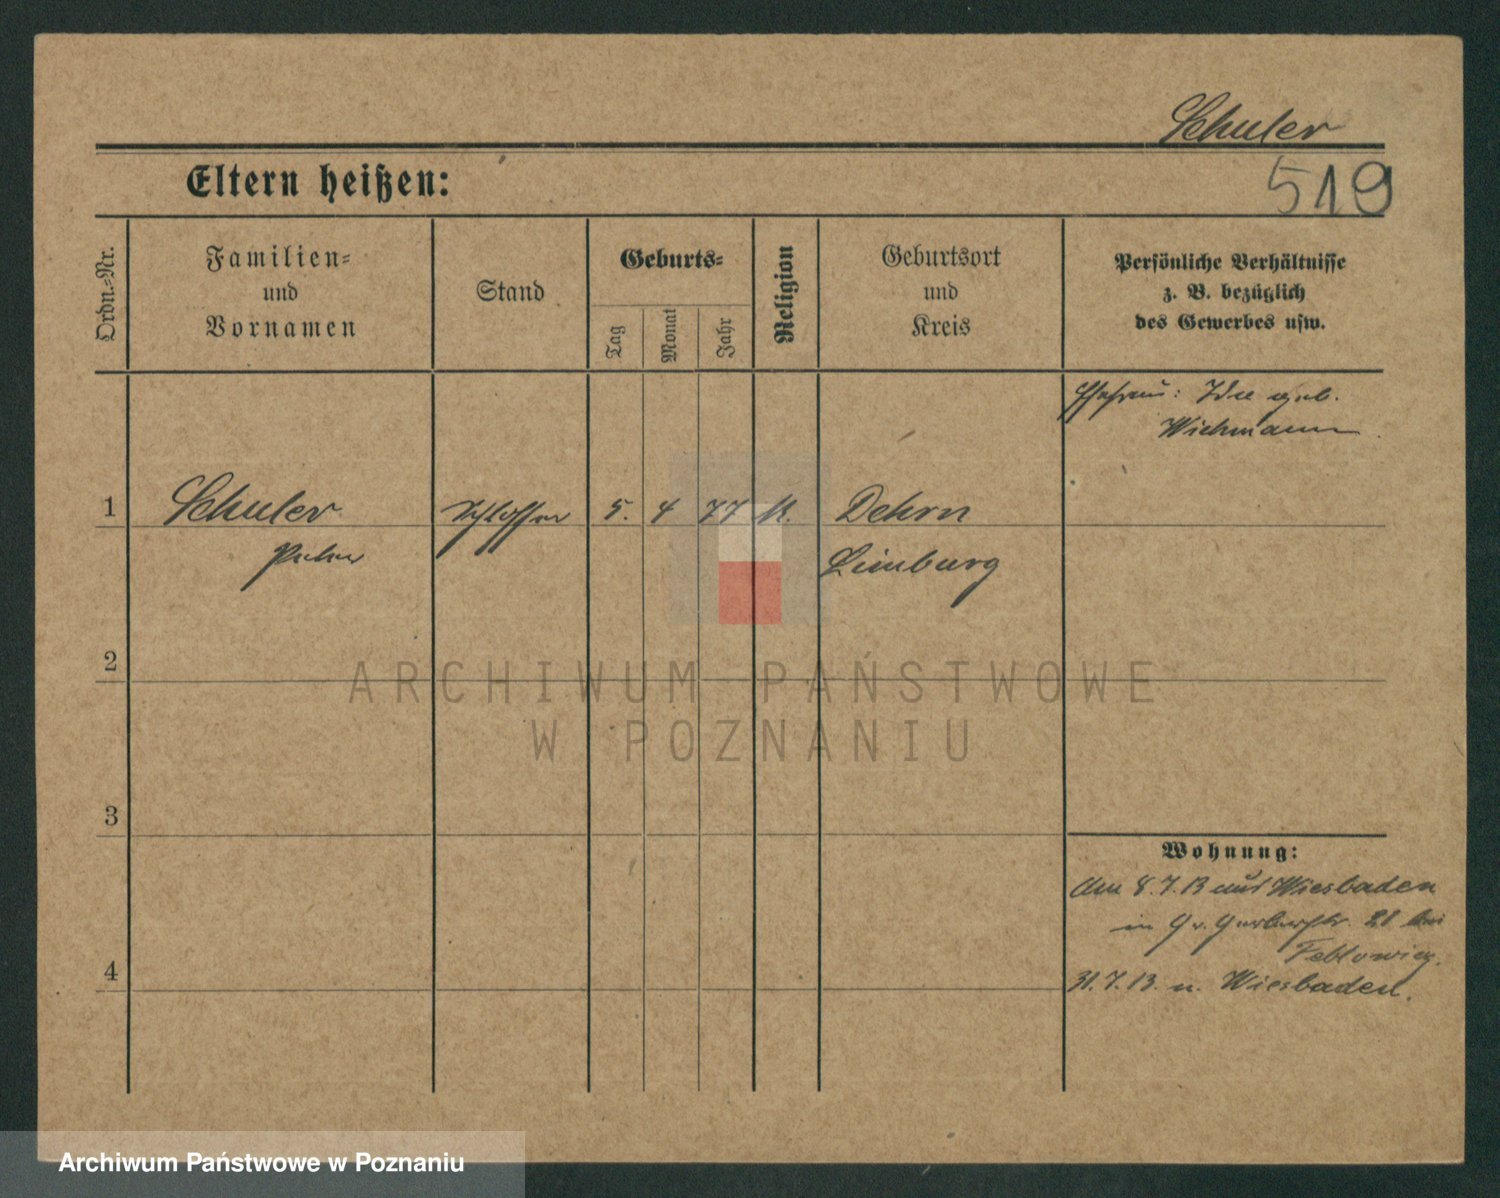 Schuler
519
Eltern heißen:
Ordn.-Nr.
Familien=
und
Vornamen
Stand
Geburts=
Tag
Monat
Jahr
Religion
Geburtsort
und
Kreis
Persönliche Verhältnisse
z. B. bezüglich
des Gewerbes usw.
Ehefrau: Ida geb.
Wichmann
1 Schuler Schlosser 5. 4 77 K. Dehrn
Peter Limburg
2
3
4
Wohnung:
Am 8.7.13 aus Wiesbaden
in Gr. Gerberstr. 21 bei
31.7.13. n. Wiesbaden.
ARCHIWUM PAŃSTWOWE
W POZNANIU
Archiwum Państwowe w Poznaniu